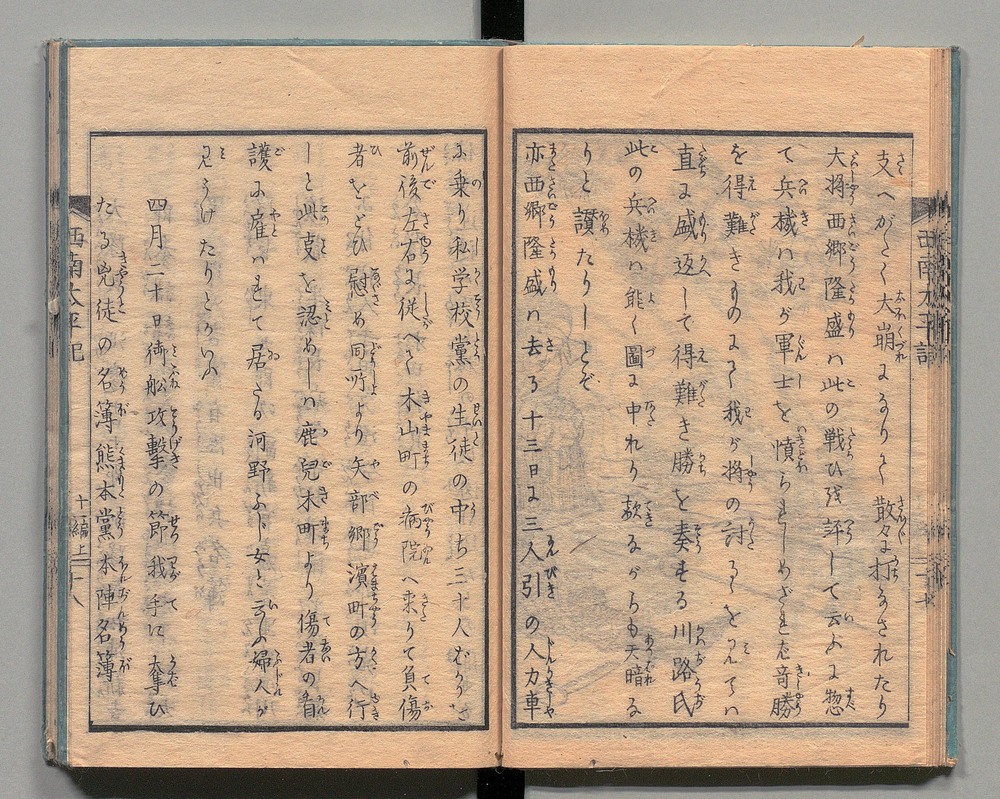 支へがたく大崩になりて散々に打なされたり
大将西郷隆盛ハ此の戦ひを評して云ふに惣
て兵機ハ我が軍士を憤らましめざれバ奇勝
を得難きものにて我が将の討るゝを見てハ
直に盛返して得難き勝を奏する川路氏
此の兵機ハ能く圖に中れり敵ながらも天暗な
りと讃たりしとぞ
亦西郷隆盛ハ去る十三日に三人引の人力車
に乗り私学校黨の生徒の中ち三十人ばかり
前後左右に従へて木山町の病院へ来りて負傷
者をとひ慰め同所より矢部郷濱町の方へ行
しと此支を認めしハ鹿兒木町より傷者の看
護に雇ハれて居たる河野ふじ女と云ふ婦人が
見うけたりとかいふ
四月二十日御船攻撃の節我手に奪ひ
たる兇徒の名簿熊本黨本陣名簿
西南太平記
十編上
十八
西南太平記